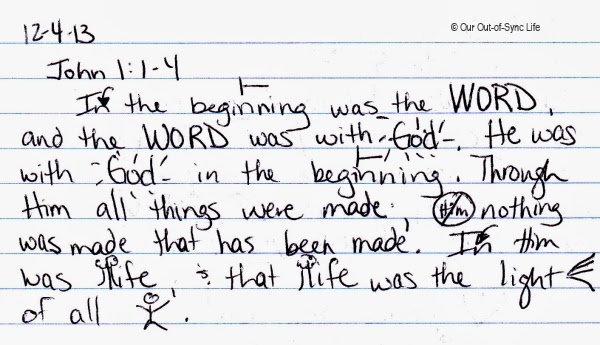 12-4-13
© Our Out-of-Sync Life
John 1:1-4
In the beginning was the WORD,
and the WORD was with God. He was
with God in the beginning. Through
Him all things were made; Him nothing
was made that has been made. In Him
was life, & that life was the light
of all .